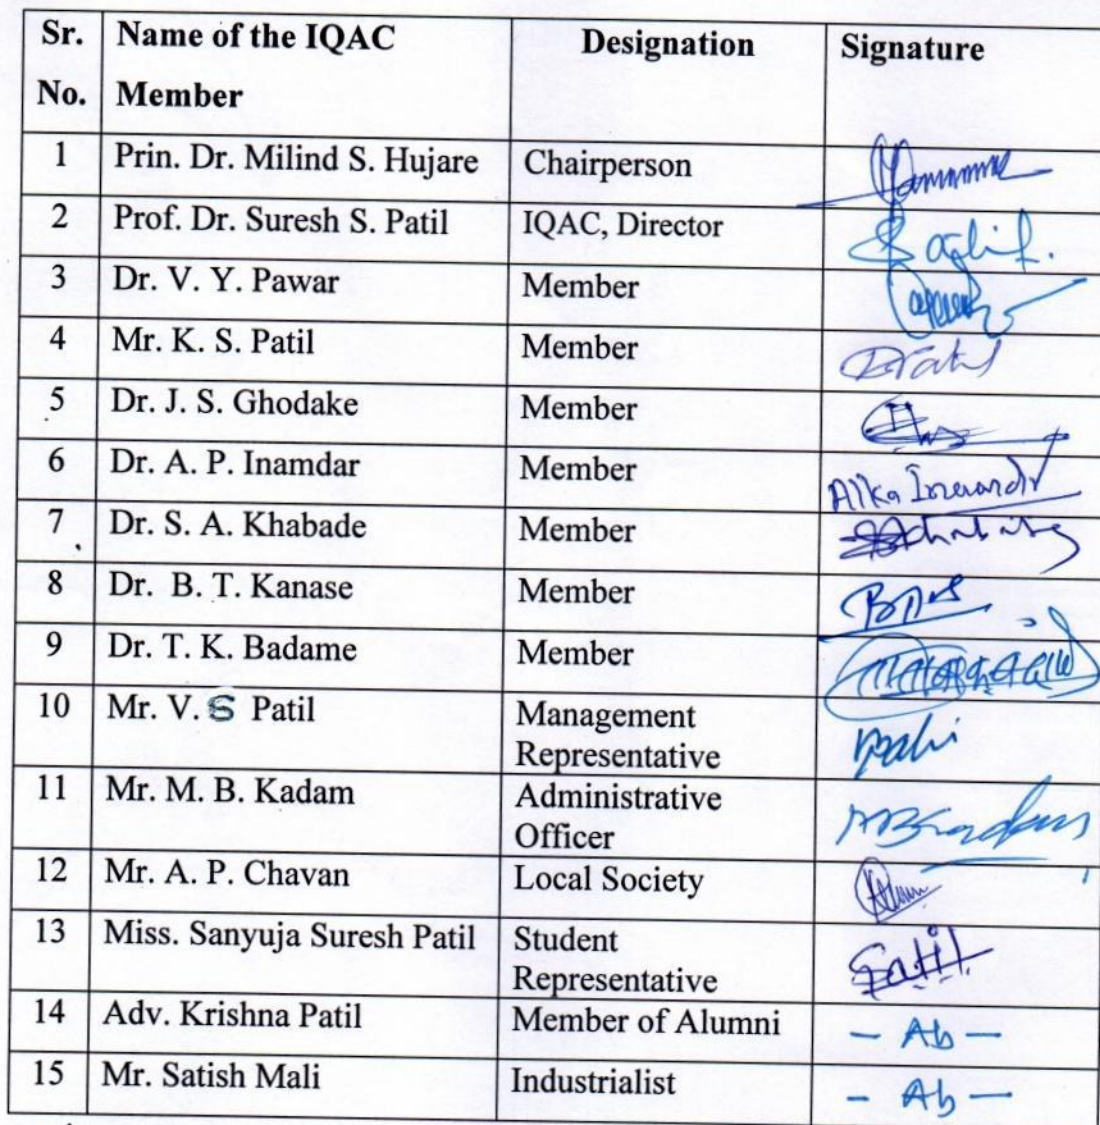 Sr. Name of the IQAC Designation Signature
No. Member
1 Prin. Dr. Milind S. Hujare Chairperson
2 Prof. Dr. Suresh S. Patil IQAC, Director
3 Dr. V. Y. Pawar Member
4 Mr. K. S. Patil Member
5 Dr. J. S. Ghodake Member
6 Dr. A. P. Inamdar Member Alka Inamdar
7 Dr. S. A. Khabade Member
8 Dr. B. T. Kanase Member
9 Dr. T. K. Badame Member
10 Mr. V. S Patil Management
Representative
11 Mr. M. B. Kadam Administrative
Officer
12 Mr. A. P. Chavan Local Society
13 Miss. Sanyuja Suresh Patil Student
Representative
14 Adv. Krishna Patil Member of Alumni - Ab -
15 Mr. Satish Mali Industrialist - Ab -